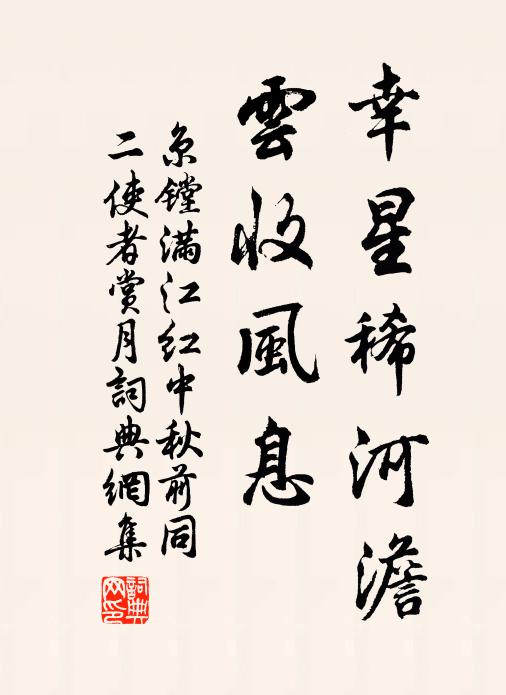 幸星稀河澹
雲收風息
京鏜滿江紅中秋前同
二使者賞月詞典網集
詞典网印